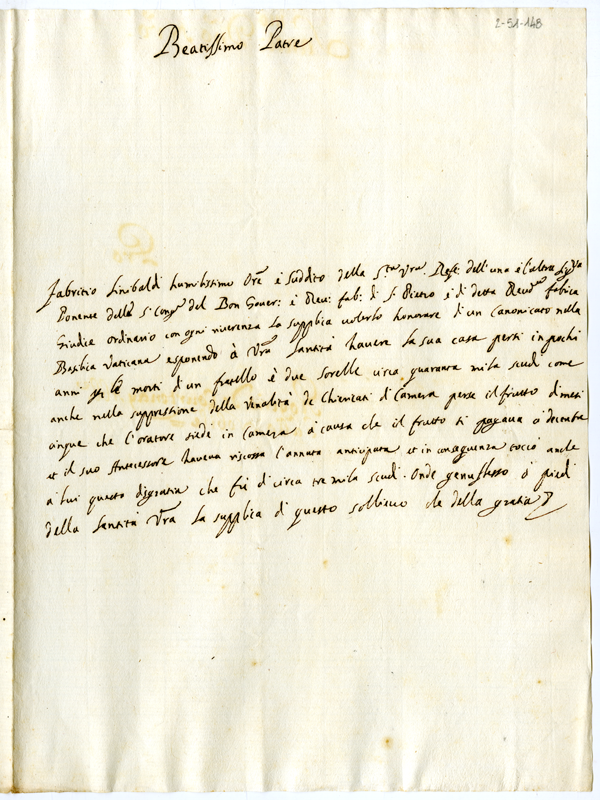 2-51-148
Beatissimo Padre
Fabritio Sinibaldi humilissimo Ore è suddito della S.ta Vra, Refe: dell'una è l'altra Sig.ra
Ponente della S. Cong.ne del Bon Gover: è Reu: fab: di S. Pietro è di detta Reud.a fabrica
Giudice ordinario con ogni riverenza La supplica volerlo honorare di un Canonicato nella
Basilica Vaticana esponendo à Vra Santità havere la sua casa persi in pochi
anni per la morti d'un fratello è due sorelle circa quaranta mila scudi come
anche nella suppressione della Venalità de Chiericati di Camera perse il frutto di mesi
cinque che l'oratore siede in Camera à causa che il frutto si pagava à decorate
et il suo Antecessore haveva riscossa l'annata anticipata et in conseguenza toccò anche
à lui questa disgratia che fù di circa tre mila scudi. Onde genuflesso à piedi
della Santità Vra La supplica di questo sollievo che della gratia